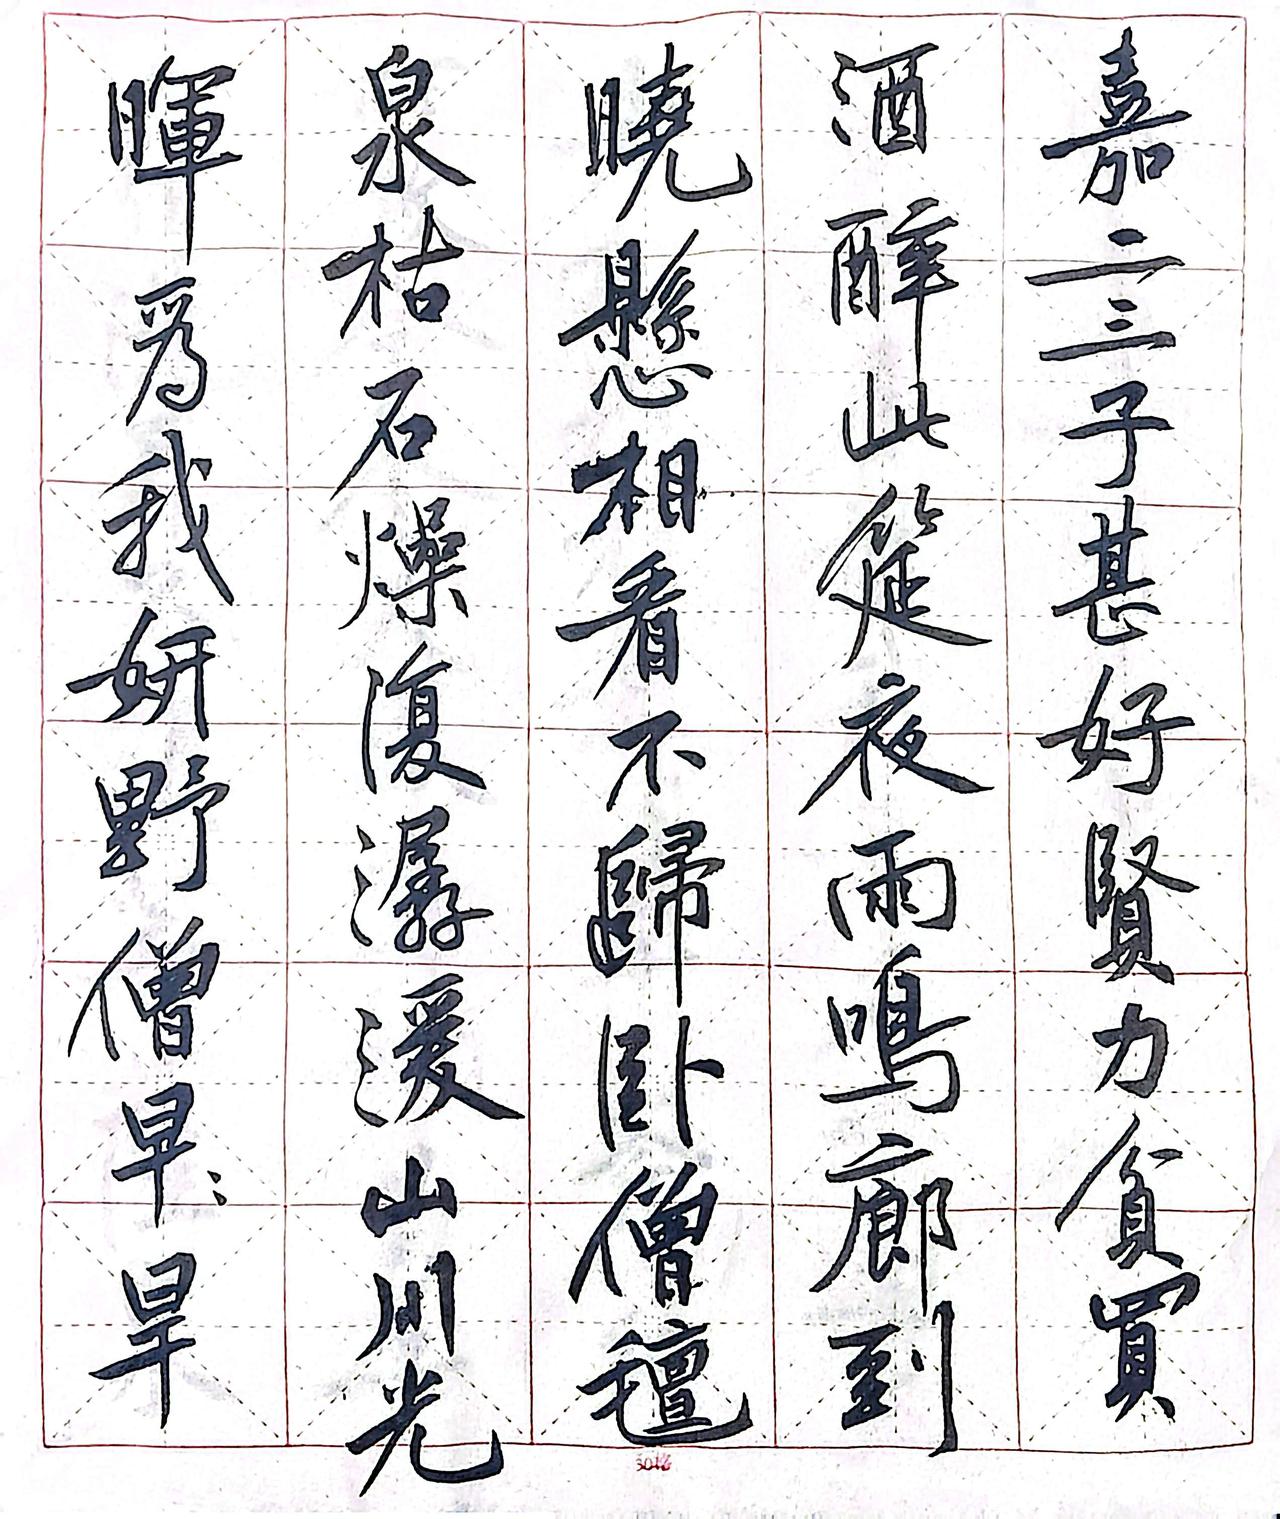 嘉二三子甚好賢力貧買
酒醉此筵夜雨鳴廊到
曉懸相看不歸卧僧氊
泉枯石燥復潺湲山川光
暉爲我妍野僧早:旱